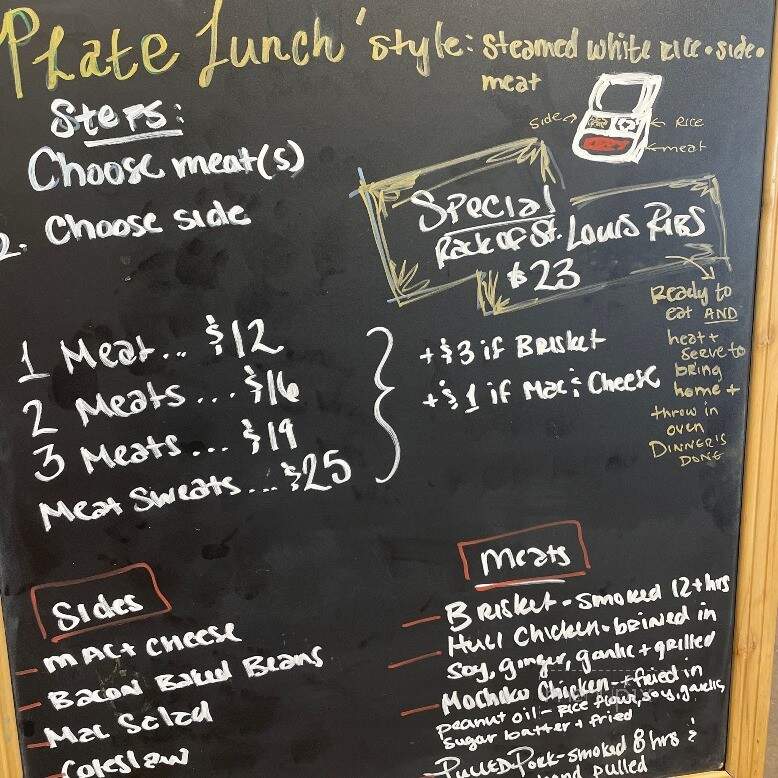 Plate Lunch 'style: steamed white rice • side •
meat
Side → ← Rice
← meat
Steps:
Choose meat(s)
2. Choose side
Special
Rack of St. Louis Ribs
$23
Ready to
eat AND
heat +
serve to
bring
home +
throw in
oven
DINNER'S
DONE
1 Meat... $12
2 Meats... $16
3 Meats... $19
Meat Sweats... $25
+$3 if Brisket
+$1 if Mac & Cheese
Sides
- Mac + Cheese
- Bacon Baked Beans
- Mac Salad
- Coleslaw
Meats
- Brisket - smoked 12+ hrs
- Huli Chicken - brined in
soy, ginger, garlic + grilled
- Mochiko Chicken - + fried in
peanut oil - rice flour, soy, garlic,
sugar batter + fried
- Pulled Pork - smoked 8 hrs &
hand pulled